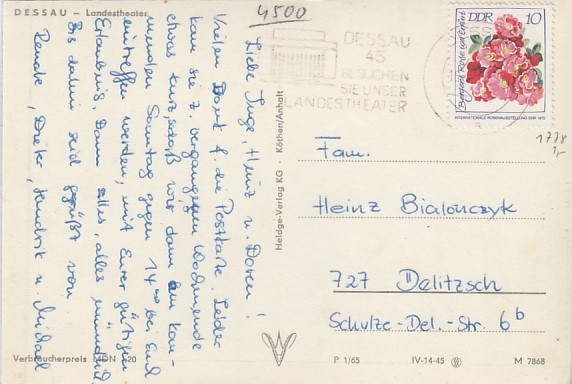 DESSAU – Landestheater
4500
Liebe Inge, Heinz u. Doren!
Vielen Dank f. die Postkarte. Leider
kam sie z. vergangenen Wochenende
etwas kurz, sodaß wir dann am kom-
menden Sonntag gegen 14⁰⁰ bei Euch
eintreffen werden, mit Eurer gütigen
Erlaubnis. Dann alles, alles mündlich.
Bis dahin seid gegrüßt von
Renate, Dieter, Hendrik u. Michael
Verbraucherpreis MDN -,20
Heldge-Verlag KG · Köthen/Anhalt
DESSAU
45
BESUCHEN
SIE UNSER
LANDESTHEATER
DDR 10
INTERNATIONALE ROSENAUSSTELLUNG DDR 1972
1778
1,-
Fam.
Heinz Bialonczyk
727 Delitzsch
Schulze-Del.-Str. 6b
P 1/65 IV-14-45 M 7868